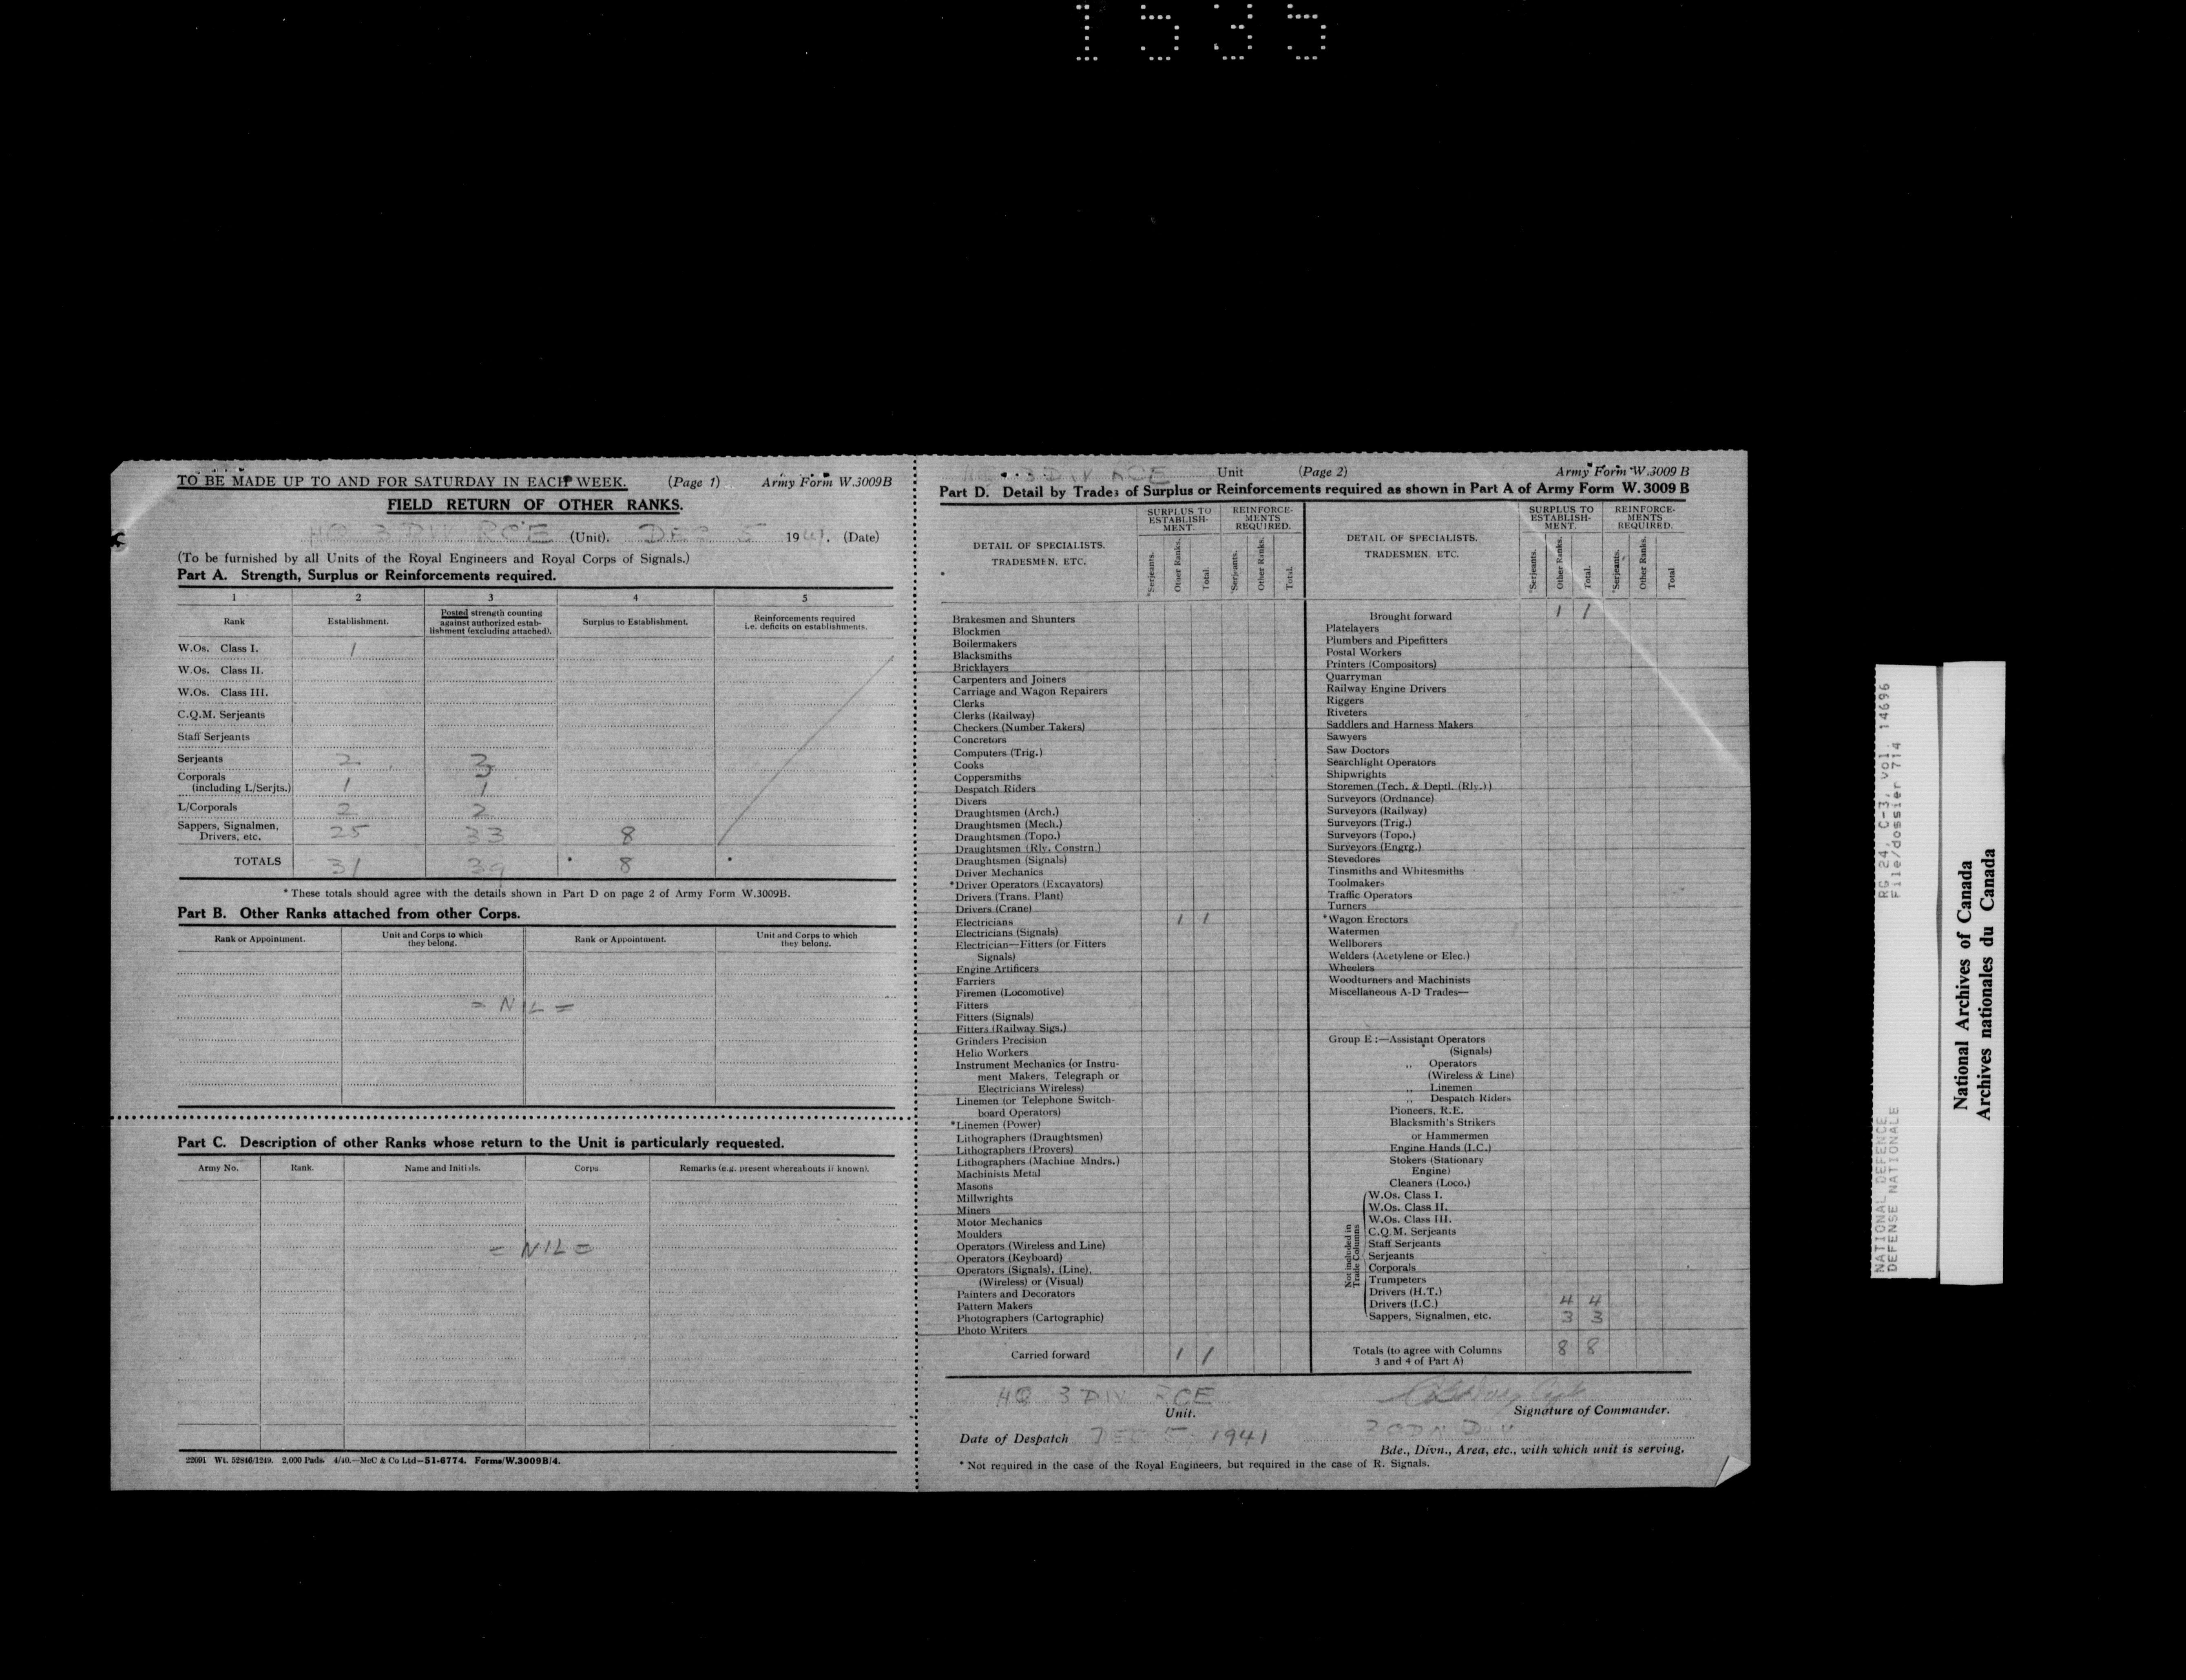 1535
TO BE MADE UP TO AND FOR SATURDAY IN EACH WEEK. (Page 1) Army Form W.3009B
FIELD RETURN OF OTHER RANKS.
HQ 3 DIV RCE (Unit). DEC 5 1941. (Date)
(To be furnished by all Units of the Royal Engineers and Royal Corps of Signals.)
Part A. Strength, Surplus or Reinforcements required.
1 2 3 4 5
Rank Establishment. Posted strength counting against authorized estab-lishment (excluding attached). Surplus to Establishment. Reinforcements required i.e. deficits on establishments.
W.Os. Class I. 1
W.Os. Class II.
W.Os. Class III.
C.Q.M. Serjeants
Staff Serjeants
Serjeants 2 3
Corporals
(including L/Serjts.) 1 1
L/Corporals 2 2
Sappers, Signalmen,
Drivers, etc. 25 33 8
TOTALS 31 39 * 8 *
* These totals should agree with the details shown in Part D on page 2 of Army Form W.3009B.
Part B. Other Ranks attached from other Corps.
Rank or Appointment. Unit and Corps to which they belong. Rank or Appointment. Unit and Corps to which they belong.
= NIL =
Part C. Description of other Ranks whose return to the Unit is particularly requested.
Army No. Rank. Name and Initials. Corps Remarks (e.g. present whereabouts if known).
= NIL =
22091 Wt. 52846/1249. 2,000 Pads. 4/40.—McC & Co Ltd—51-6774. Forms/W.3009B/4.
HQ 3 DIV RCE Unit (Page 2) Army Form W.3009 B
Part D. Detail by Trades of Surplus or Reinforcements required as shown in Part A of Army Form W.3009 B
DETAIL OF SPECIALISTS. TRADESMEN. ETC.
SURPLUS TO ESTABLISH-MENT. REINFORCE-MENTS REQUIRED.
*Serjeants. Other Ranks. Total. *Serjeants. Other Ranks. Total.
Brakesmen and Shunters
Blockmen
Boilermakers
Blacksmiths
Bricklayers
Carpenters and Joiners
Carriage and Wagon Repairers
Clerks
Clerks (Railway)
Checkers (Number Takers)
Concretors
Computers (Trig.)
Cooks
Coppersmiths
Despatch Riders
Divers
Draughtsmen (Arch.)
Draughtsmen (Mech.)
Draughtsmen (Topo.)
Draughtsmen (Rly. Constrn.)
Draughtsmen (Signals)
Driver Mechanics
*Driver Operators (Excavators)
Drivers (Trans. Plant)
Drivers (Crane)
Electricians 1 1
Electricians (Signals)
Electrician—Fitters (or Fitters
Signals)
Engine Artificers
Farriers
Firemen (Locomotive)
Fitters
Fitters (Signals)
Fitters (Railway Sigs.)
Grinders Precision
Helio Workers
Instrument Mechanics (or Instru-
ment Makers, Telegraph or
Electricians Wireless)
Linemen (or Telephone Switch-
board Operators)
*Linemen (Power)
Lithographers (Draughtsmen)
Lithographers (Provers)
Lithographers (Machine Mndrs.)
Machinists Metal
Masons
Millwrights
Miners
Motor Mechanics
Moulders
Operators (Wireless and Line)
Operators (Keyboard)
Operators (Signals), (Line),
(Wireless) or (Visual)
Painters and Decorators
Pattern Makers
Photographers (Cartographic)
Photo Writers
Carried forward 1 1
DETAIL OF SPECIALISTS. TRADESMEN. ETC.
SURPLUS TO ESTABLISH-MENT. REINFORCE-MENTS REQUIRED.
*Serjeants. Other Ranks. Total. *Serjeants. Other Ranks. Total
Brought forward 1 1
Platelayers
Plumbers and Pipefitters
Postal Workers
Printers (Compositors)
Quarryman
Railway Engine Drivers
Riggers
Riveters
Saddlers and Harness Makers
Sawyers
Saw Doctors
Searchlight Operators
Shipwrights
Storemen (Tech. & Deptl. (Rly.))
Surveyors (Ordnance)
Surveyors (Railway)
Surveyors (Trig.)
Surveyors (Topo.)
Surveyors (Engrg.)
Stevedores
Tinsmiths and Whitesmiths
Toolmakers
Traffic Operators
Turners
*Wagon Erectors
Watermen
Wellborers
Welders (Acetylene or Elec.)
Wheelers
Woodturners and Machinists
Miscellaneous A-D Trades—
Group E :—Assistant Operators
(Signals)
,, Operators
(Wireless & Line)
,, Linemen
,, Despatch Riders
Pioneers, R.E.
Blacksmith's Strikers
or Hammermen
Engine Hands (I.C.)
Stokers (Stationary
Engine)
Cleaners (Loco.)
Not included in Trade Columns
W.Os. Class I.
W.Os. Class II.
W.Os. Class III.
C.Q.M. Serjeants
Staff Serjeants
Serjeants
Corporals
Trumpeters
Drivers (H.T.)
Drivers (I.C.) 4 4
Sappers, Signalmen, etc. 3 3
Totals (to agree with Columns
3 and 4 of Part A) 8 8
HQ 3 DIV RCE
Unit.
Signature of Commander.
Date of Despatch DEC 5 1941
3 CDN DIV
Bde., Divn., Area, etc., with which unit is serving.
* Not required in the case of the Royal Engineers, but required in the case of R. Signals.
NATIONAL DEFENCE RG 24, C-3, vol. 14696
DEFENSE NATIONALE File/dossier 714
National Archives of Canada
Archives nationales du Canada